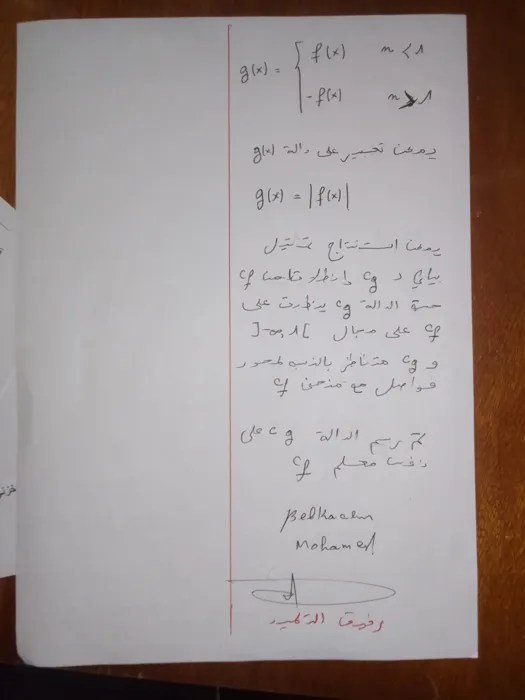 g(x) = { f(x) x < 1
-f(x) x > 1
يمكن تعبير على دالة g(x)
g(x) = |f(x)|
يمكن استنتاج تمثيل
بياني لـ Cg إنطلاقا من Cf
حيث الدالة Cg ينطبق على
Cf على مجال ]-∞, 1[
و Cg متناظر بالنسبة لمحور
فواصل مع منحنى Cf
ثم برسم الدالة Cg على
نفس معلم Cf
Belkacem
Mohamed